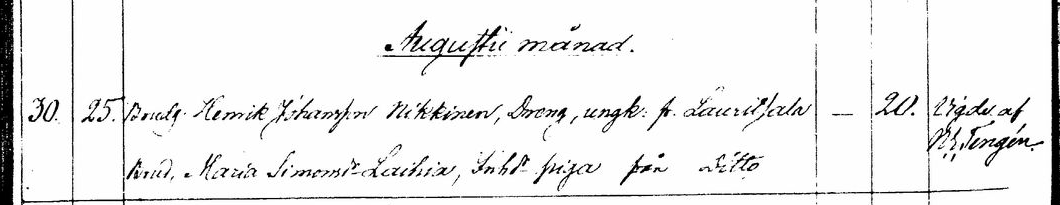 Augustii månad.
30. 25. Brudg. Henrik Johansson Nikkinen, Dreng, ungk. fr. Lauritsala — 20. Vigde af
Brud. Maria Simonsdr Laihia, Inhs piga från Ditto Tengén.